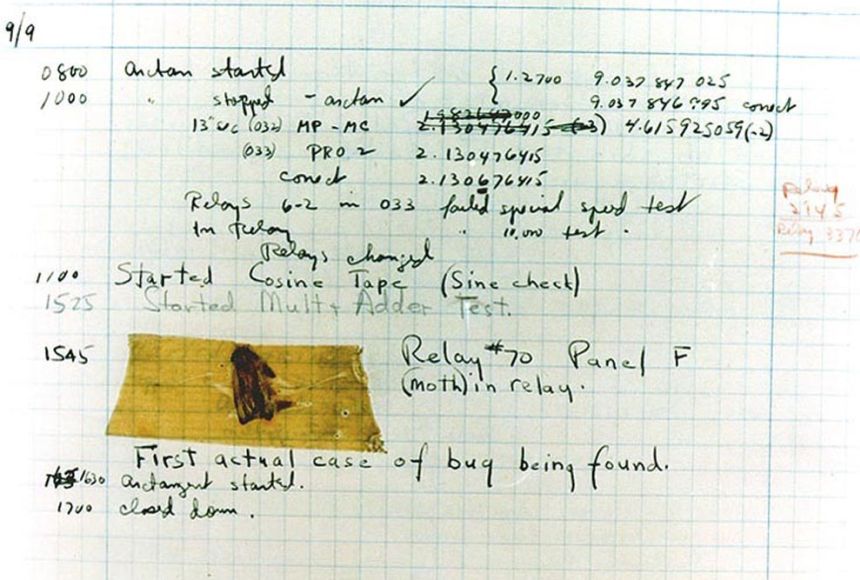 9/9
0800 arctan started { 1.2700 9.037 847 025
1000 " stopped - arctan ✓ 9.037 846 995 correct
13" uc (032) MP - MC 2.130476415 (-3) 4.615925059(-2)
(033) PRO 2 2.130476415
correct 2.130676415
Relays 6-2 in 033 failed special speed test
In relay " 10,000 test .
Relays changed
Relay
2145
Relay 3370
1100 Started Cosine Tape (Sine check)
1525 Started Mult + Adder Test.
1545 Relay #70 Panel F
(moth) in relay.
First actual case of bug being found.
1630 arctangent started.
1700 closed down.